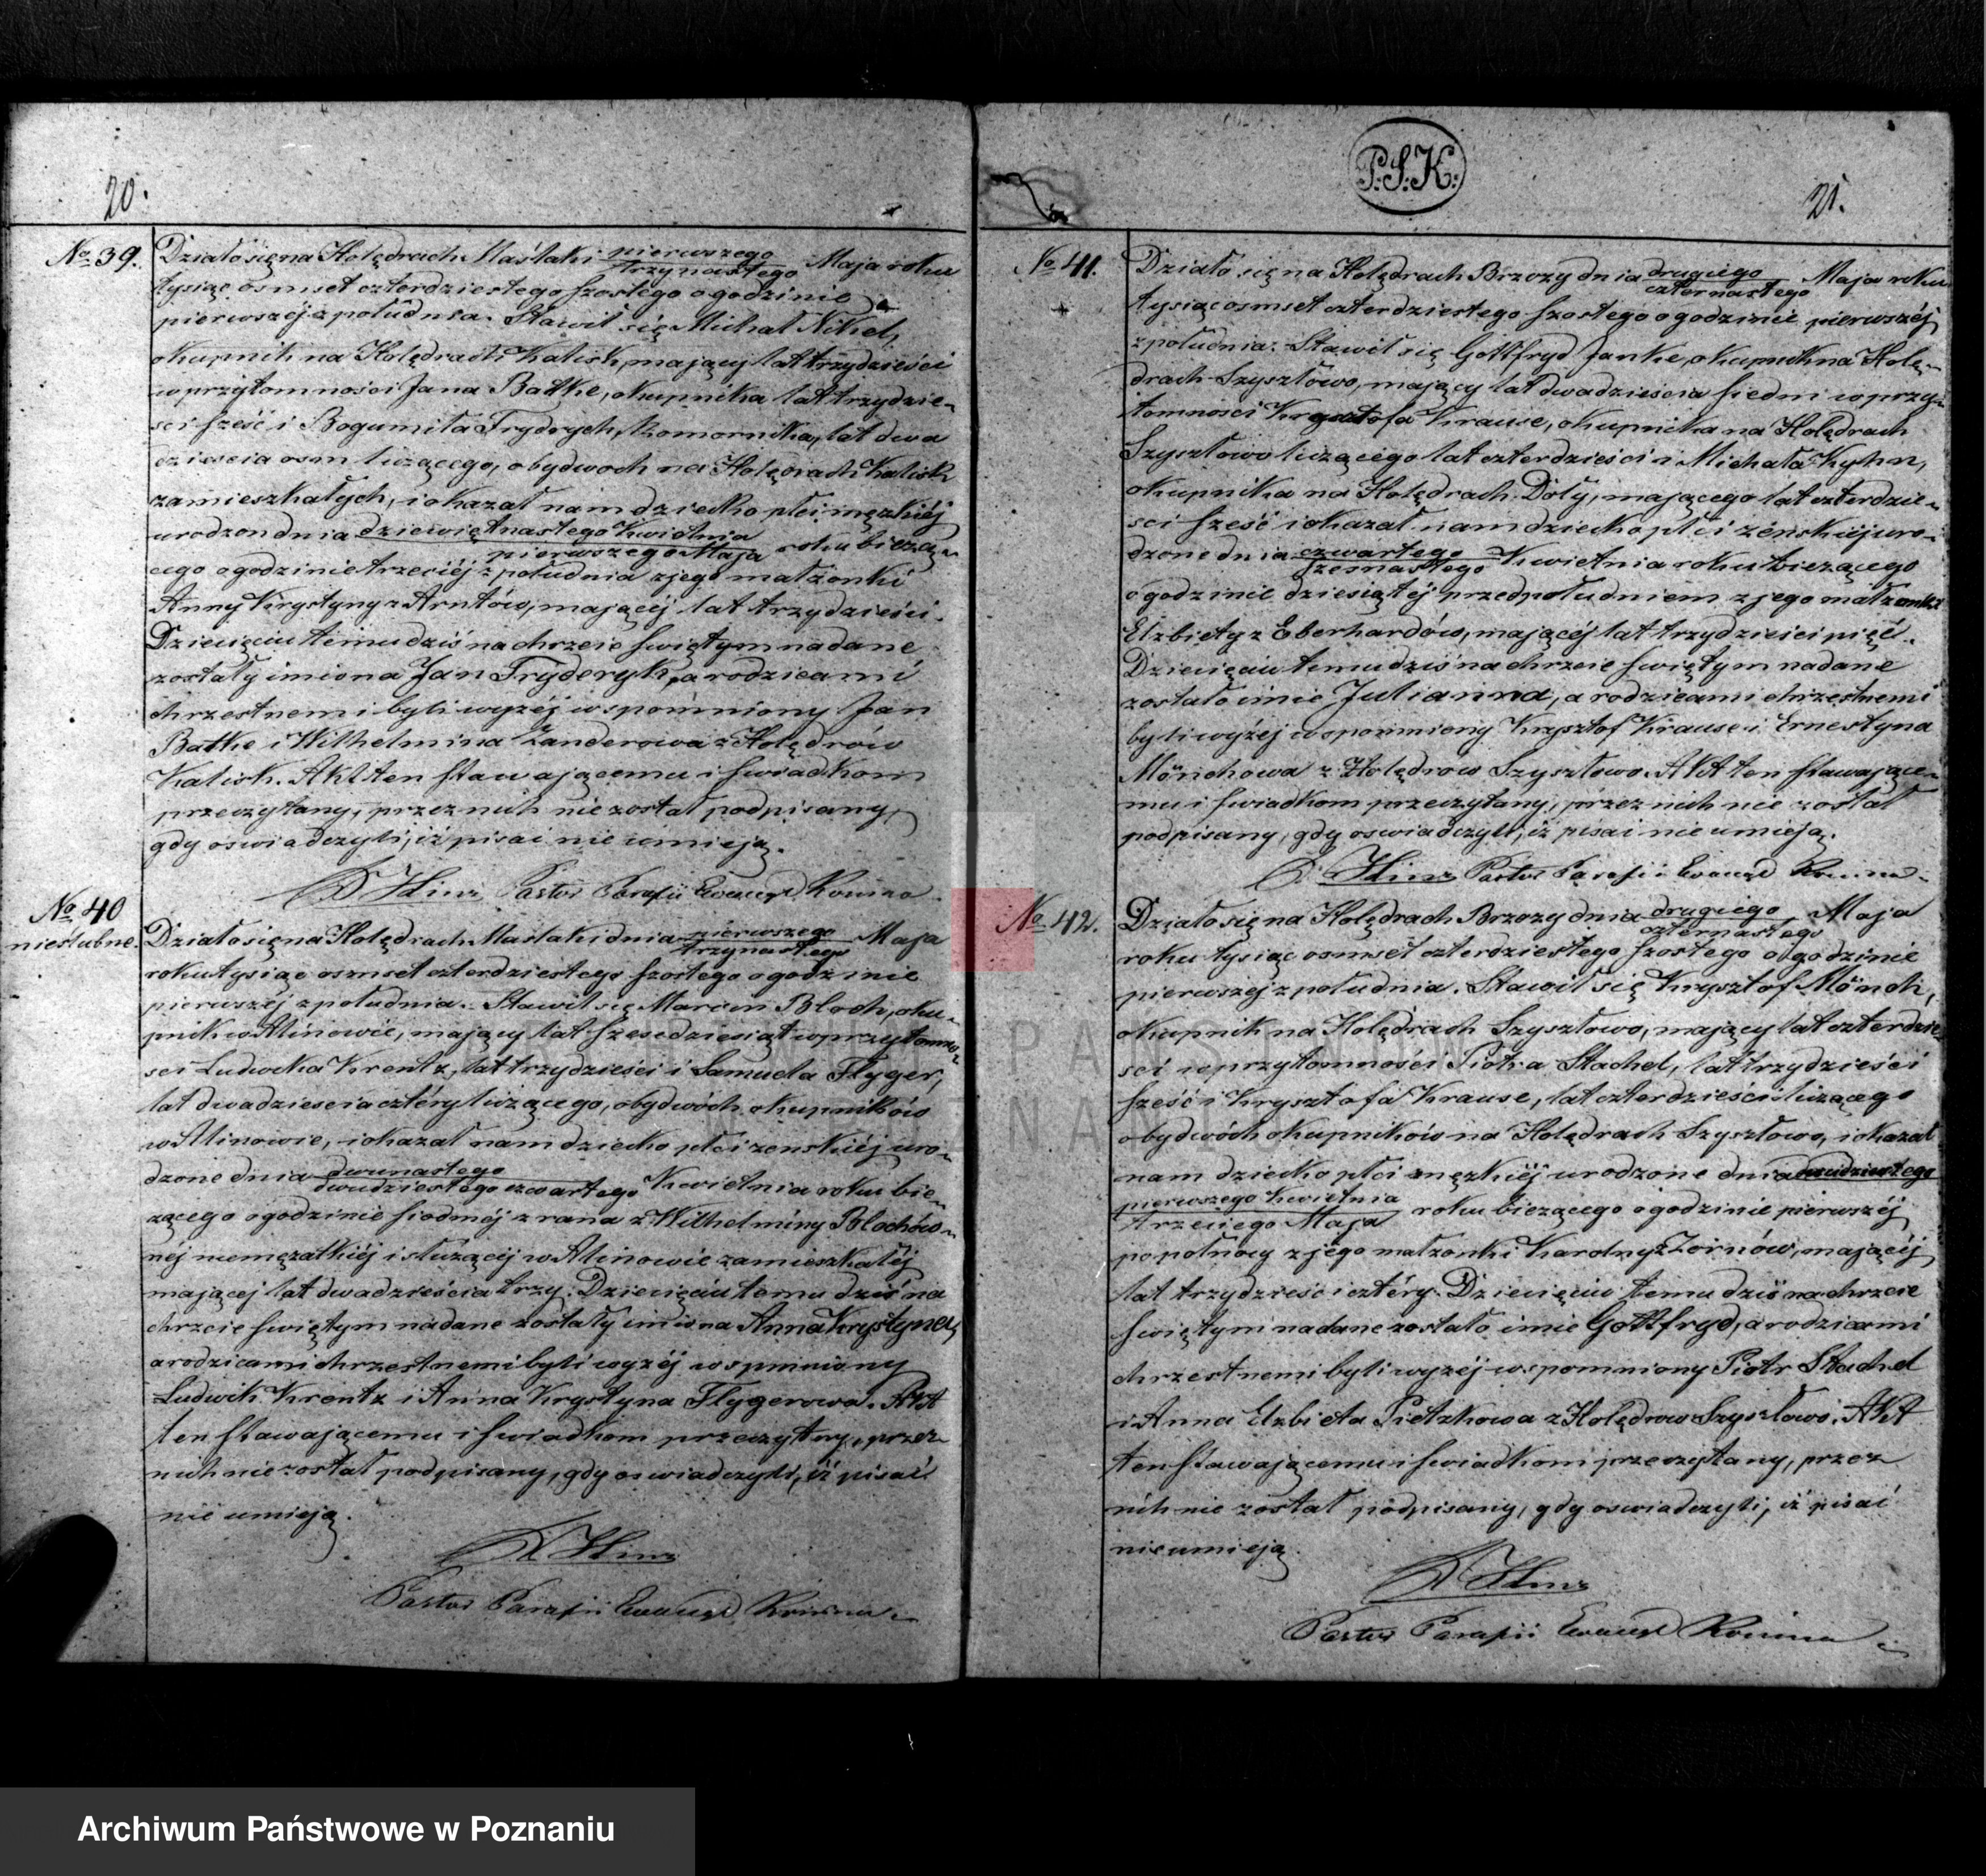 20.
No 39. Działo się na Holędrach Maślaki pierwszego / trzynastego Maja roku
tysiąc osmset czterdziestego szostego o godzinie
pierwszéj z południa. Stawił się Michał Nikel,
okupnik na Holędrach Kalisk, mający lat trzydzieści
w przytomności Jana Batke, okupnika lat trzydzie-
sci sześć i Bogumiła Frydrych, komornika, lat dwa
dziescia osm liczącego, obydwoch na Holędrach Kalisk
zamieszkałych, i okazał nam dziecko płci męzkiéj
urodzon dnia dziewiętnastego Kwietnia / pierwszego Maja roku bieżą-
cego o godzinie trzeciéj z południa z jego małżonki
Anny Krystyny z Arntów, mającéj lat trzydzieści.
Dziecięciu temu dziś na chrzcie swiętym nadane
zostały imiona Jan Fryderyk, a rodzicami
chrzestnemi byli wyżéj wspomniony Jan
Batke i Wilhelmina Zanderowa z Holędrów
Kalisk. Akt ten stawającemu i swiadkom
przeczytany, przez nich nie został podpisany,
gdy oswiadczyli, iż pisać nie umieją.
Hinz Pastor Parafii Ewangl Konina
No 40
nieslubne. Działo się na Holędrach Maslaki dnia pierwszego / trzynastego Maja
roku tysiąc osmset czterdziestego szostego o godzinie
pierwszéj z południa. Stawił się Marcin Bloch, oku-
pnik w Alinowie, mający lat szescdziesiąt w przytomno-
sci Ludwika Krentz, lat trzydzieści i Samuela Flyger,
lat dwadziescia cztéry liczącego, obydwóch okupników
w Alinowie, i okazał nam dziecko płci zenskiéj uro-
dzone dnia dwunastego / dwudziestego czwartego Kwietnia roku bie-
żącego o godzinie siodméj z rana z Wilhelminy Blochów-
néj niemęzatkiéj i służącéj w Alinowie zamieszkałéj
mającej lat dwadzieścia trzy. Dziecięciu temu dziś na
chrzcie swiętym nadane zostały imiona Anna Krystyna,
a rodzicami chrzestnemi byli wyzéj wspmniony
Ludwik Krentz i Anna Krystyna Flygerowa. Akt
ten stawającemu i swiadkom przeczytany, przez
nich nie został podpisany, gdy oswiadczyli, iż pisać
nie umieją.
Hinz
Pastor Parafii Ewangl Konina
P.S.K.
21.
No 41. Działo się na Holędrach Brzozy dnia drugiego / czternastego Maja roku
tysiąc osmset czterdziestego szostego o godzinie pierwszéj
z południa. Stawił się Gottfryd Janke, okupnik na Holę-
drach Szyszłowo, mający lat dwadziescia siedm w przy-
tomności Krysztofa Krause, okupnika na Holędrach
Szyszłowo liczącego lat czterdzieści i Michała Kyhn,
okupnika na Holędrach Doły, mającego lat czterdzie-
sci sześć i okazał nam dziecko płci żenskiéj uro-
dzone dnia czwartego / szesnastego Kwietnia roku bieżącego
o godzinie dziesiątéj przed południem z jego małżonki
Elzbiety z Eberhardów, mającéj lat trzydzieści pięć.
Dziecięciu temu dziś na chrzcie swiętym nadane
zostało imie Julianna, a rodzicami chrzestnemi
byli wyżéj wspomniony Krysztof Krause i Ernestyna
Mönchowa z Holędrow Szyszłowo. Akt ten stawające-
mu i swiadkom przeczytany, przez nich nie został
podpisany, gdy oswiadczyli, iż pisać nie umieją.
Hinz Pastor Parafii Ewangl Konina
No 42. Działo się na Holędrach Brzozy dnia drugiego / czternastego Maja
roku tysiąc osmset czterdziestego szostego o godzinie
pierwszéj z południa. Stawił się Krysztof Mönch,
okupnik na Holędrach Szyszłowo, mający lat czterdzie-
sci w przytomności Piotra Stachel, lat trzydzieści
sześć i Krysztofa Krause, lat czterdzieści liczącego
obydwóch okupników na Holędrach Szyszłowo, i okazał
nam dziecko płci męzkiéj urodzone dnia dwudziestego
pierwszego Kwietnia / trzeciego Maja roku bieżącego o godzinie pierwszéj
po połnocy z jego małżonki Karoliny z Zornów, mającéj
lat trzydzieści cztéry. Dziecięciu temu dziś na chrzcie
swiętym nadane zostało imie Gottfryd, a rodzicami
chrzestnemi byli wyzéj wspomniony Piotr Stachel
i Anna Elzbieta Pietzkowa z Holędrow Szyszłowo. Akt
ten stawającemu i swiadkom przeczytany, przez
nich nie został podpisany, gdy oswiadczyli, iż pisać
nie umieją.
Hinz
Pastor Parafii Ewangl Konina
ARCHIWUM PAŃSTWOWE
W POZNANIU
Archiwum Państwowe w Poznaniu